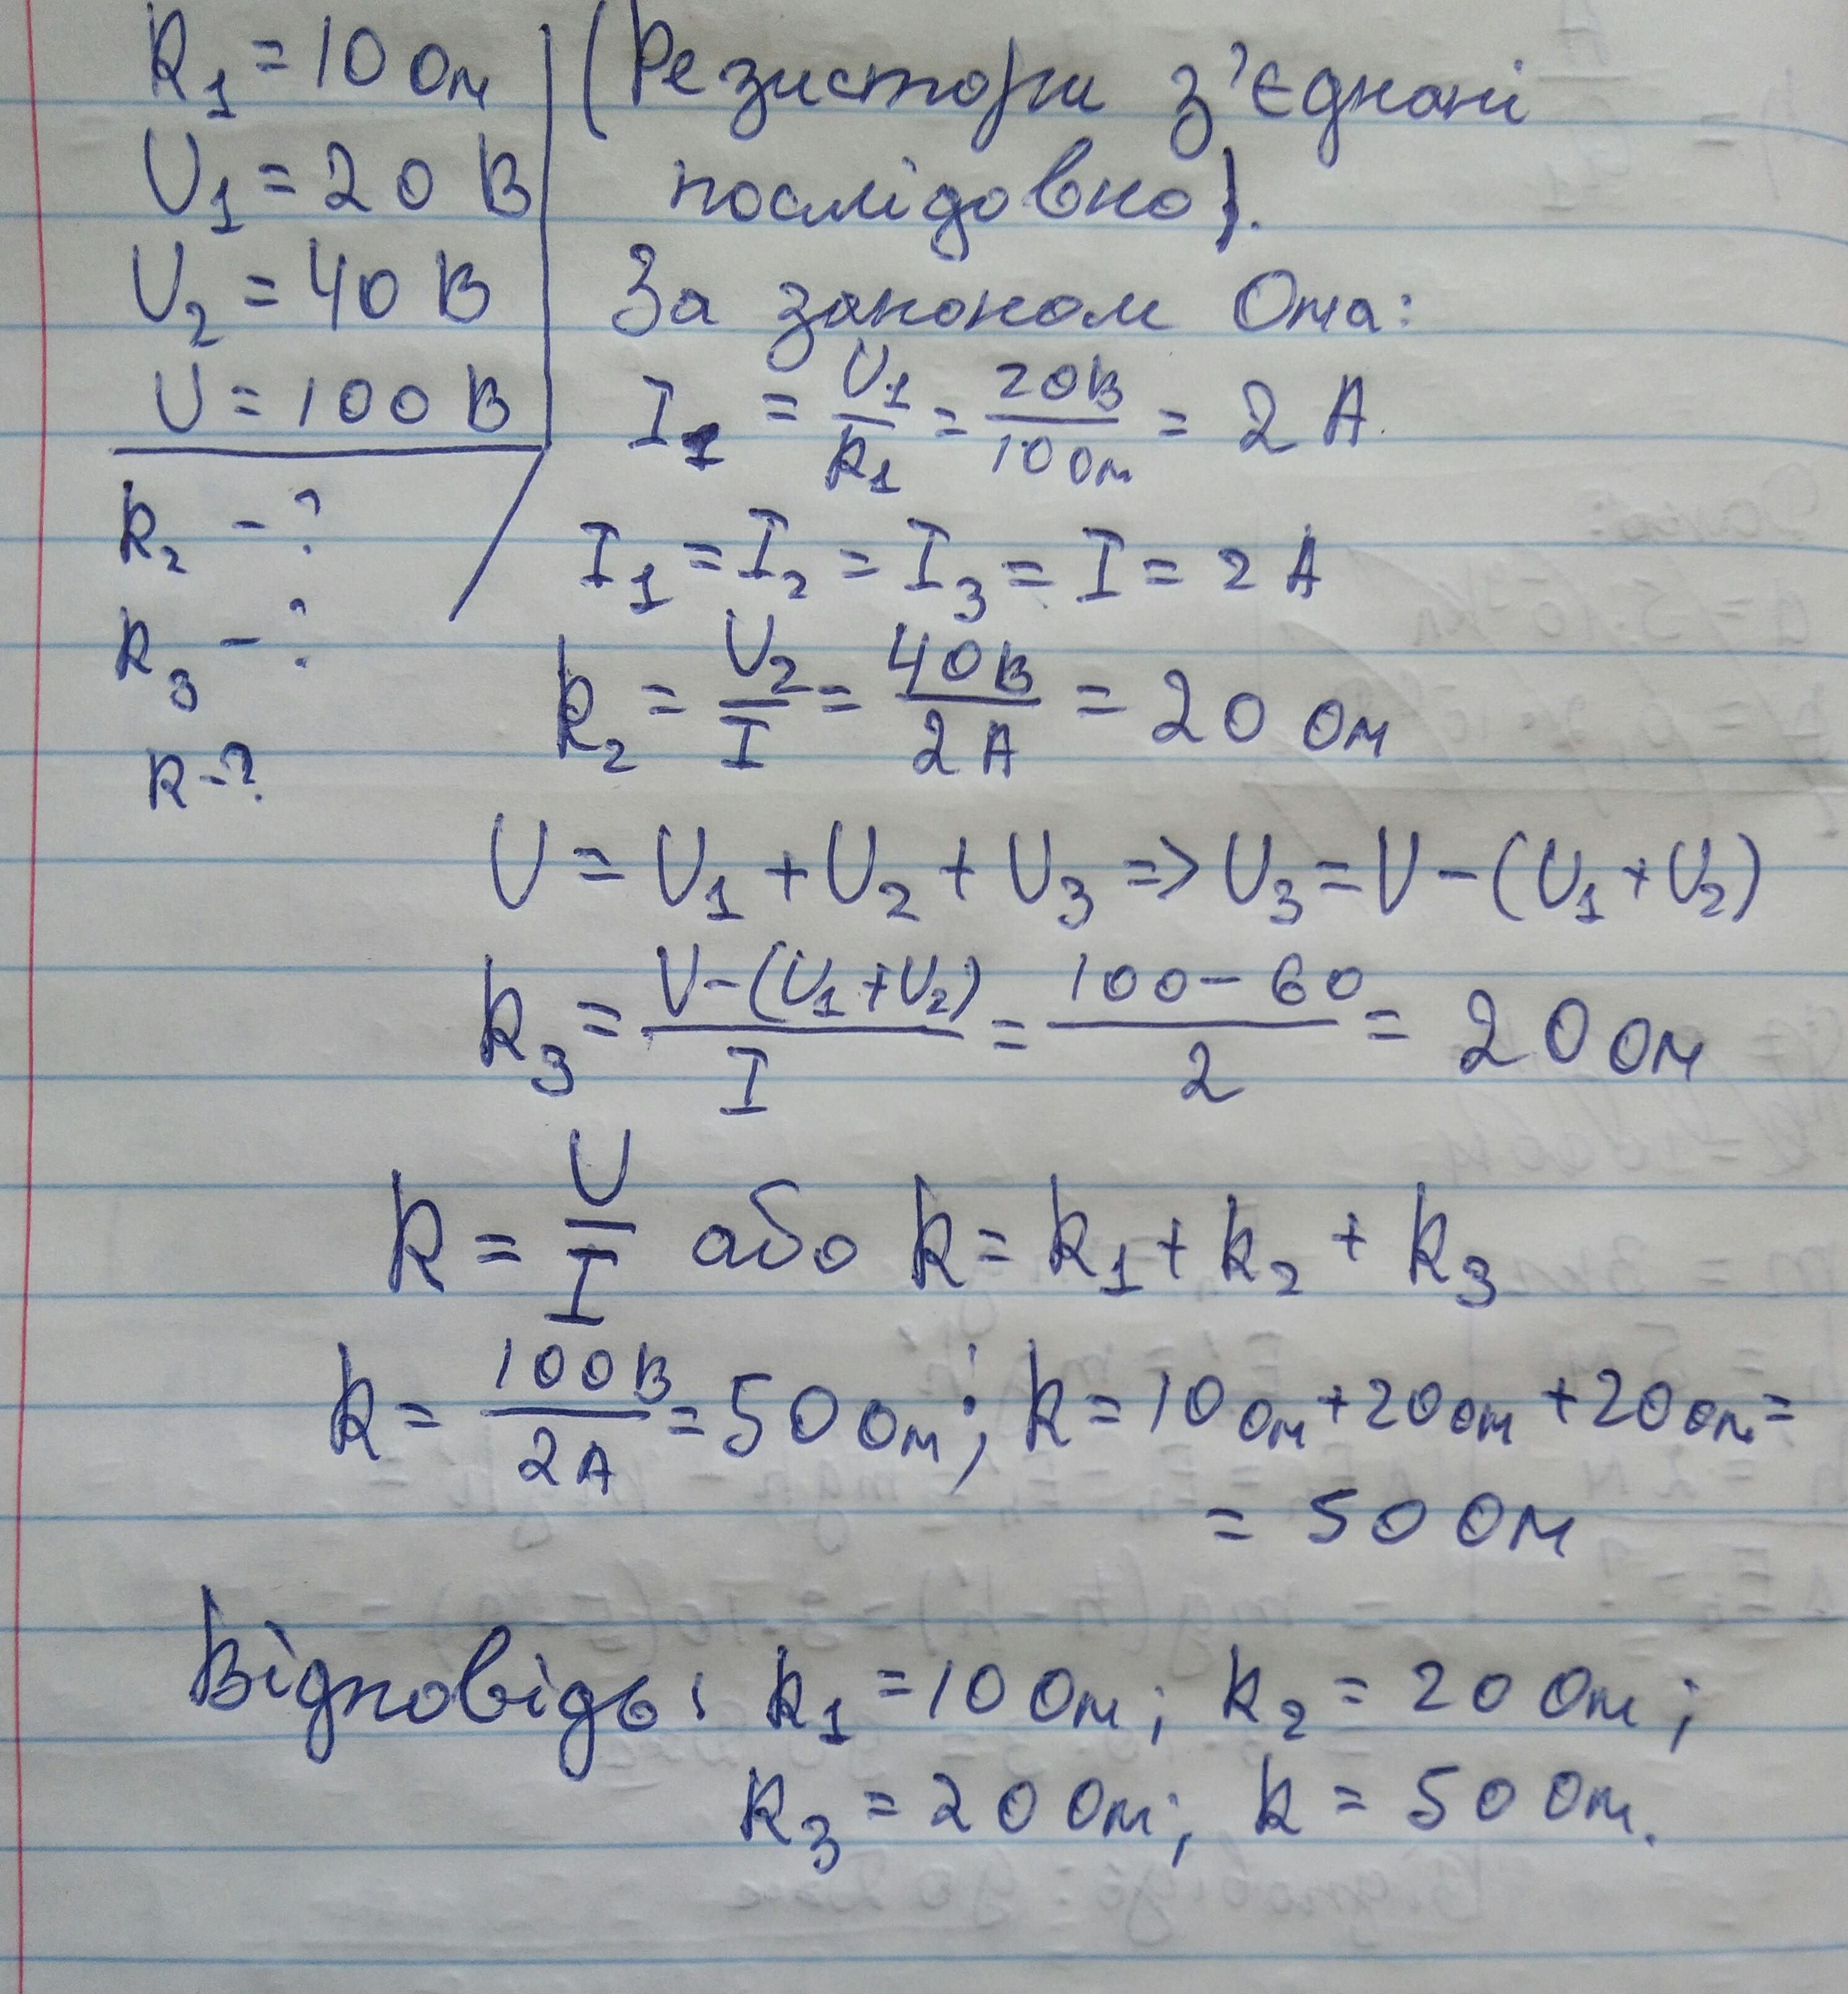 R₁ = 10 Ом
U₁ = 20 В
U₂ = 40 В
U = 100 В
R₂ - ?
R₃ - ?
R - ?
(Резистори з'єднані
послідовно).
За законом Ома:
I₁ = U₁/R₁ = 20В/10 Ом = 2 А.
I₁ = I₂ = I₃ = I = 2 А
R₂ = U₂/I = 40В/2А = 20 Ом
U = U₁ + U₂ + U₃ => U₃ = U - (U₁ + U₂)
R₃ = U - (U₁ + U₂)/I = 100 - 60/2 = 20 Ом
R = U/I або R = R₁ + R₂ + R₃
R = 100В/2А = 50 Ом; R = 10 Ом + 20 Ом + 20 Ом =
= 50 Ом
Відповідь: R₁ = 10 Ом; R₂ = 20 Ом;
R₃ = 20 Ом; R = 50 Ом.